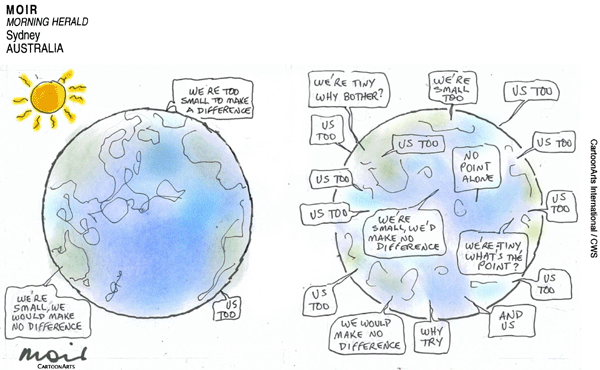 MOIR
MORNING HERALD
Sydney
AUSTRALIA
WE'RE TOO
SMALL TO MAKE
A DIFFERENCE
WE'RE
SMALL, WE
WOULD MAKE
NO DIFFERENCE
US
TOO
moir
CARTOONARTS
WE'RE TINY
WHY BOTHER?
WE'RE
SMALL
TOO
US TOO
US
TOO
US TOO
US TOO
NO
POINT
ALONE
US TOO
US TOO
US
TOO
WE'RE
SMALL, WE'D
MAKE NO
DIFFERENCE
WE'RE TINY,
WHAT'S THE
POINT?
US
TOO
US
TOO
WE WOULD
MAKE NO
DIFFERENCE
WHY
TRY
AND
US
CartoonArts International / CWS